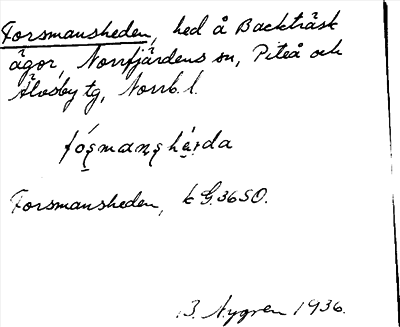 Forsmansheden, hed å Backträsk
ägor, Norrfjärdens sn, Piteå och
Älvsby tg, Norrb. l.
Forsmansheden, k G.3650.
B. Nygren 1936.